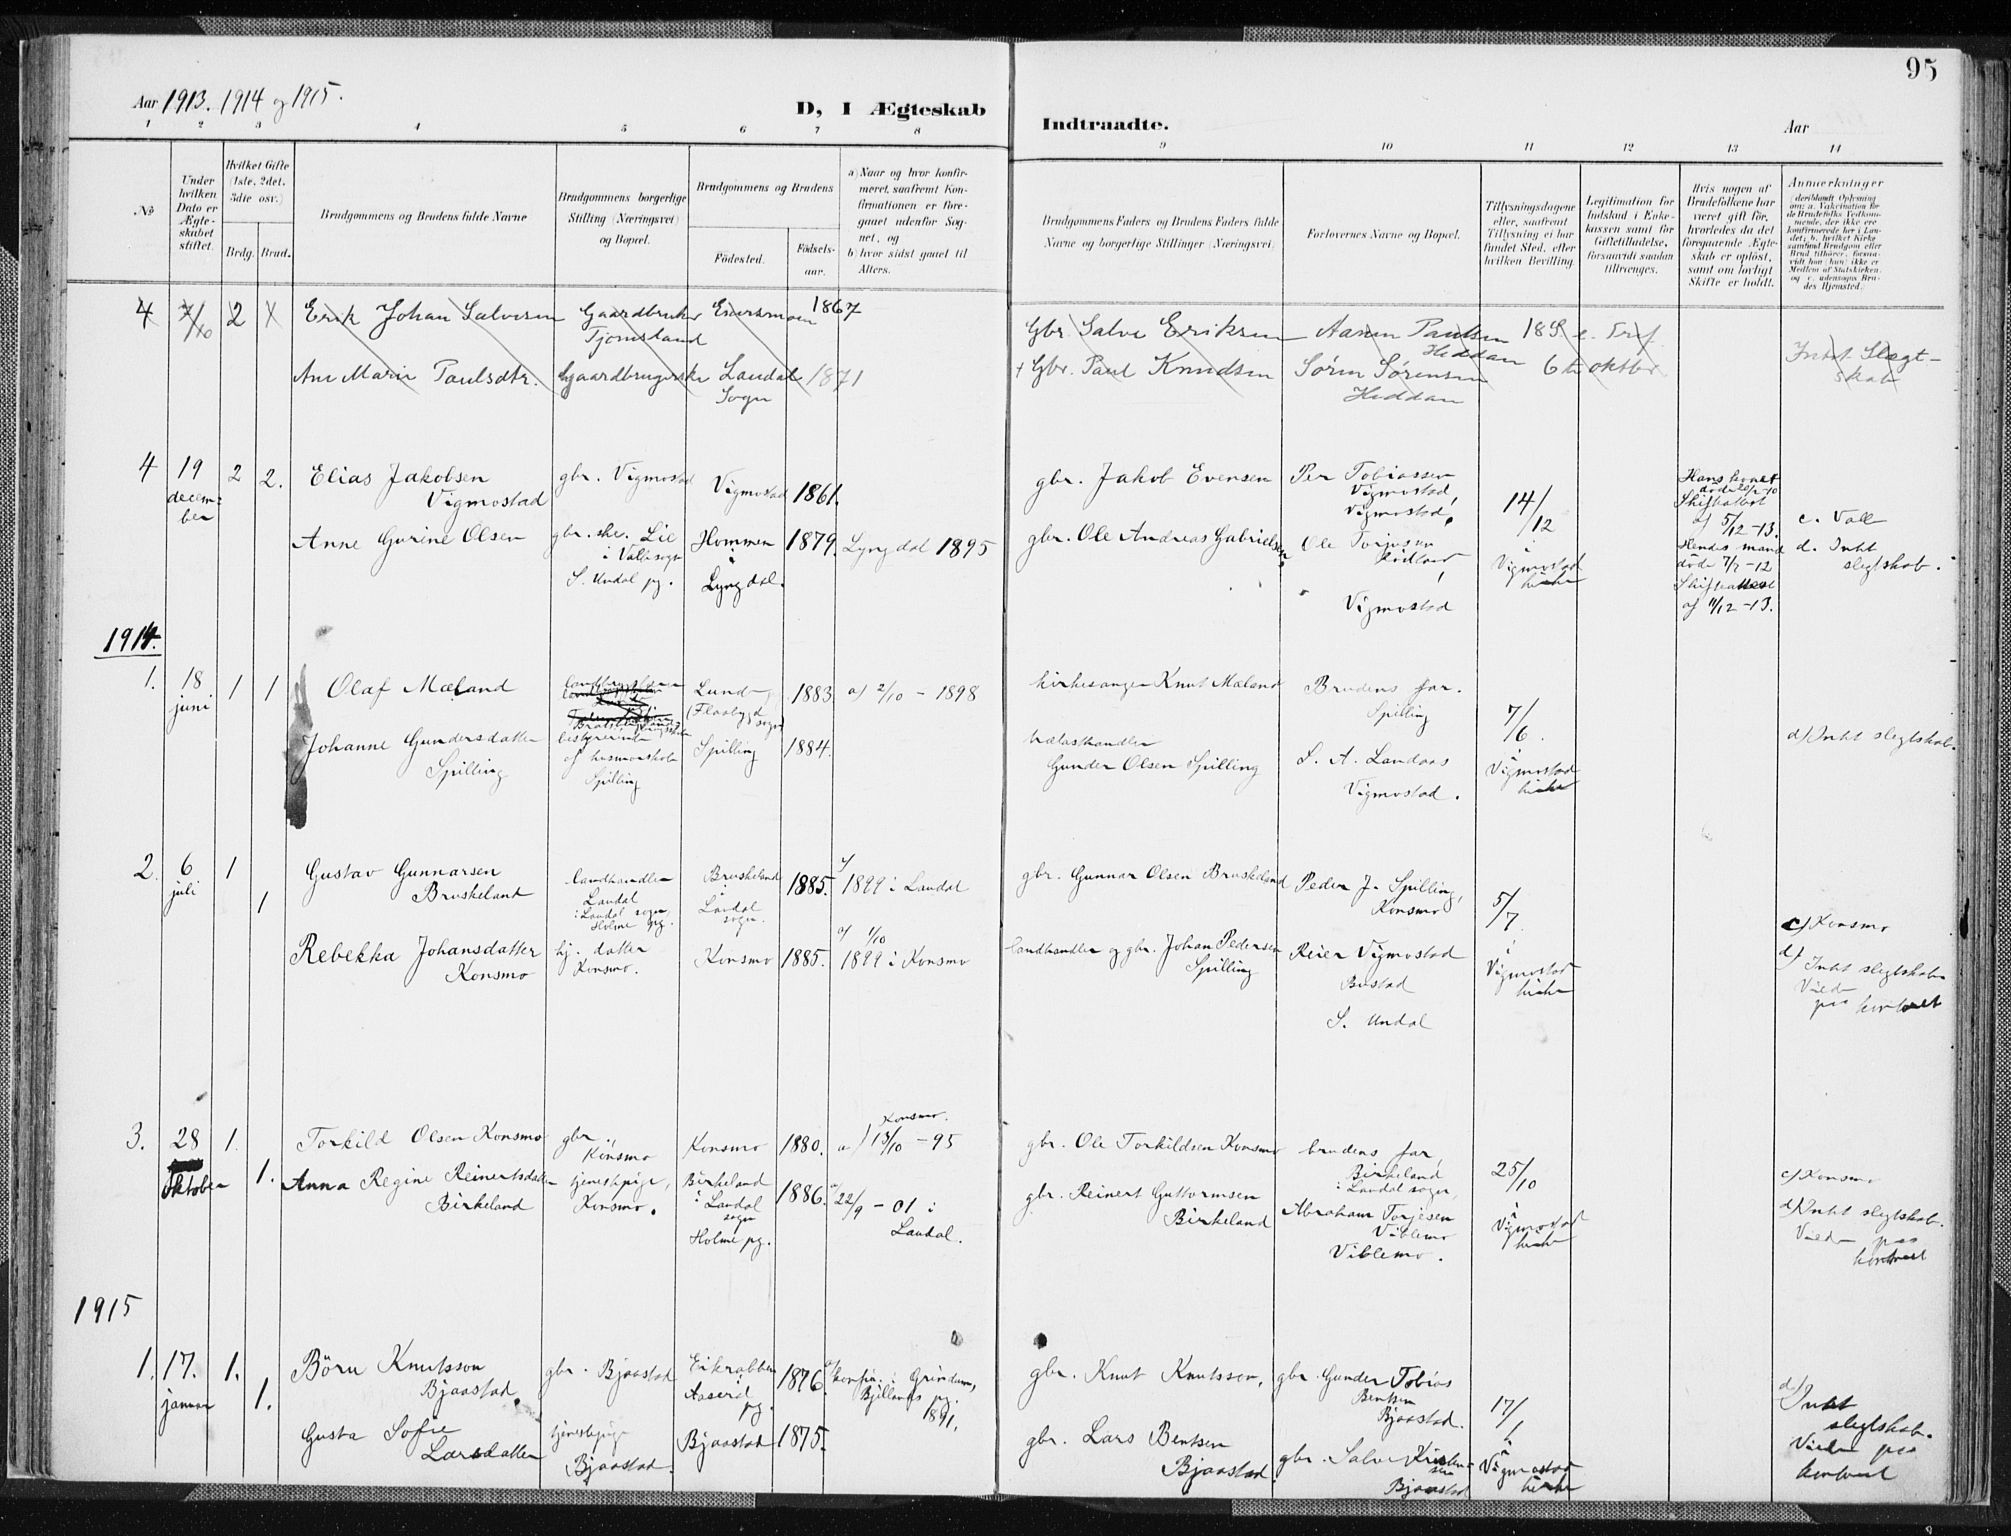 95
Aar 1913. 1914 og 1915.
D, I Ægteskab Indtraadte.
Aar
1 2 3 4 5 6 7 8 9 10 11 12 13 14
No
Under hvilken Dato er Ægteskabet stiftet.
Hvilket Gifte (1ste, 2det, 3die osv.)
Brdg. Brud.
Brudgommens og Brudens fulde Navne
Brudgommens borgerlige Stilling (Næringsvei) og Bopæl.
Brudgommens og Brudens
Födested. Födselsaar.
a) Naar og hvor konfirmeret, saafremt Konfirmationen er foregaaet udenfor Sognet, og
b) hvor sidst gaaet til Alters.
Brudgommens Faders og Brudens Faders fulde Navne og borgerlige Stillinger (Næringsvei)
Forlovernes Navne og Bopæl.
Tillysningsdagene eller, saafremt Tillysning ei har fundet Sted, efter hvilken Bevilling
Legitimation for Indskud i Enkekassen samt for Giftetilladelse, forsaavidt saadan tiltrænges.
Hvis nogen af Brudefolkene har været gift för, hvorledes da det foregaaende Ægteskab er oplöst, samt om lovligt Skifte er holdt.
Anmerkninger
4 7/10 2 Erik Johan Salvesen Gaardbruker Tjomsland 1867
Gbr. Salve Eriksen Aanen Paulsen Heddan
Ane Marie Paulsdtr. Gaardbrugerske Laudal Sogn 1871
+ Gbr. Paul Knudsen Sören Sörensen Heddan 6te oktbr
Intet Slegtskab
4 19 december 2 2. Elias Jakobsen Vigmostad gbr. Vigmostad Vigmostad 1861.
gbr. Jakob Evensen Per Tobiassen Vigmostad, Vigmostad.
14/12 i Vigmostad kirke
Anne Gurine Olsen gbr.ske. Lie i Valle sogn S. Undal pg. Hommen i Lyngdal. 1879. Lyngdal 1895
gbr. Ole Andreas Gabrielsen. Ole Torjusen Vigmostad
Skifteattest af 5/12 -13.
Hendes mand döde 7/7 -12
Skifteattest af 11/12 -13.
c. Valle
d. Intet slegtskab.
1914.
1. 18 juni 1 1 Olaf Mæland Lund (Flaabygd sogn) 1883 a) 2/10 - 1898
kirkesanger Knut Mæland Brudens far. Spilling
7/6. i Vigmostad kirke
Johanne Gundersdatter Spilling bestyrerinde af husmorskole Spilling Spilling 1884.
trælasthandler Gunder Olsen Spilling S. A. Landaas Vigmostad.
d) Intet slegtskab.
2. 6 juli 1 1 Gustav Gunnarsen Bruskeland landhandler Laudal i Laudal sogn Holme pg. Bruskeland i Laudal sogn. 1885. a/ 1899 i Laudal
gbr. Gunnar Olsen Bruskeland Peder J. Spilling, Konsmo
5/7 i Vigmostad kirke
Rebekka Johansdatter Konsmo hj. datter Konsmo. Konsmo 1885. a/ 1/10 1899 i Konsmo
landhandler og gbr. Johan Pedersen Spilling Reier Vigmostad Bustad S. Undal
c) Konsmo
d) Intet slegtskab.
Viede paa kontoret
3. 28 oktober 1. 1. Torkild Olsen Konsmo gbr., Konsmo Konsmo 1880. a) 15/10 - 95 Konsmo.
gbr. Ole Torkildsen Konsmo brudens far, Birkeland i Laudal sogn,
25/10 i Vigmostad kirke
Anna Regine Reinertsdatter Birkeland tjenestepige, Konsmo. Birkeland i Laudal sogn Holme pg. 1886. a/ 22/9 - 01 i Laudal.
gbr. Reinert Guttormsen Birkeland Abraham Torjesen Viblemo Viblemo.
c) Konsmo
d) Intet slegtskab.
Viede paa kontoret
1915
1. 17. januar 1. 1. Böru Knutsson Bjaastad. gbr. Bjaastad Aaserid pg. 1876 a/ konfir. i Grindum, Bjellands pg. 1891.
gbr. Knut Knutsson, gbr. Gunder Tobias Bentsen Bjaastad.
17/1 i Vigmostad kirke
Gusta Sofie Larsdatter tjenestepige Bjaastad. Bjaastad 1875.
gbr. Lars Bentsen Bjaastad. gbr. Salve Bjaastad
d) Intet slegtskab.
Viede paa kontoret